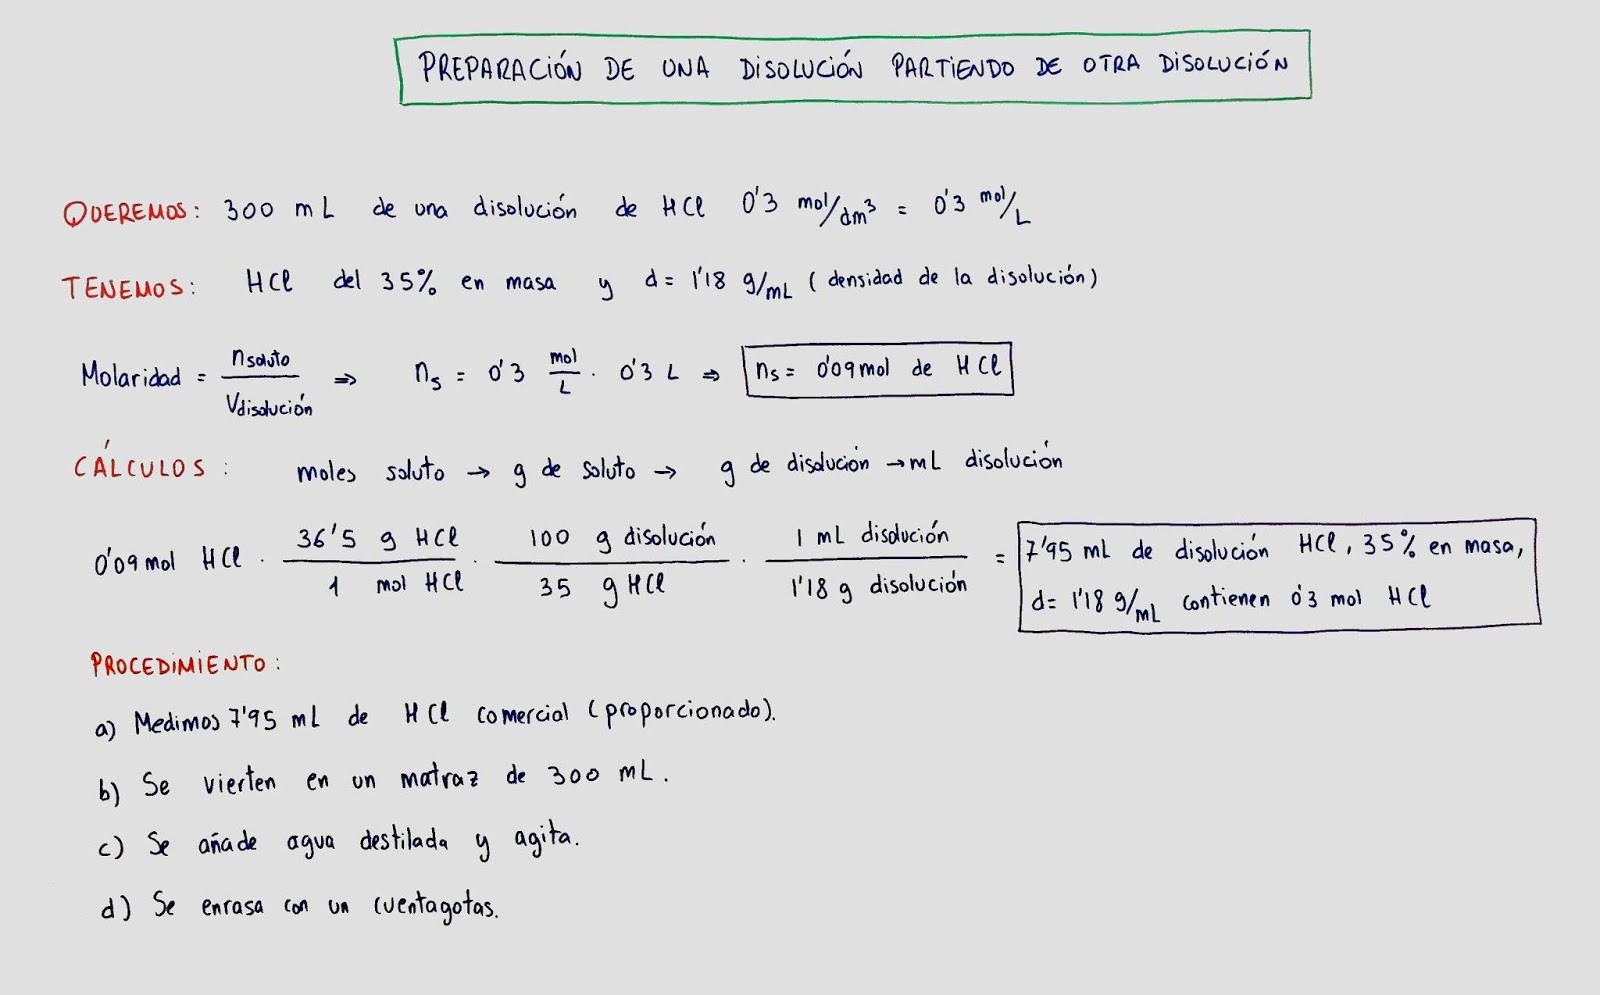 PREPARACIÓN DE UNA DISOLUCIÓN PARTIENDO DE OTRA DISOLUCIÓN
QUEREMOS: 300 mL de una disolución de HCl 0'3 mol/dm³ = 0'3 mol/L
TENEMOS: HCl del 35% en masa y d = 1'18 g/mL (densidad de la disolución)
Molaridad = n soluto / V disolución ⇒ nₛ = 0'3 mol/L · 0'3 L ⇒ nₛ = 0'09 mol de HCl
CÁLCULOS: moles soluto → g de soluto → g de disolución → mL disolución
0'09 mol HCl · 36'5 g HCl / 1 mol HCl · 100 g disolución / 35 g HCl · 1 mL disolución / 1'18 g disolución = 7'95 mL de disolución HCl, 35% en masa,
d = 1'18 g/mL contienen 0'3 mol HCl
PROCEDIMIENTO:
a) Medimos 7'95 mL de HCl comercial (proporcionado).
b) Se vierten en un matraz de 300 mL.
c) Se añade agua destilada y agita.
d) Se enrasa con un cuentagotas.